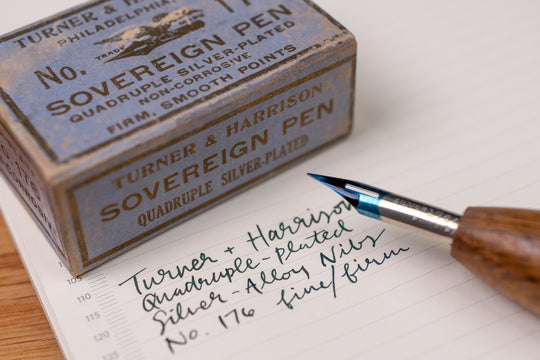 TURNER & HARRISON
PHILADELPHIA
TRADE
No.
SOVEREIGN PEN
QUADRUPLE SILVER-PLATED
NON-CORROSIVE
FIRM, SMOOTH POINTS
TURNER & HARRISON
SOVEREIGN PEN
QUADRUPLE SILVER-PLATED
Turner + Harrison
Quadruple-Plated
Silver-Alloy Nibs
No. 176 fine/firm
105
110
115
120
125